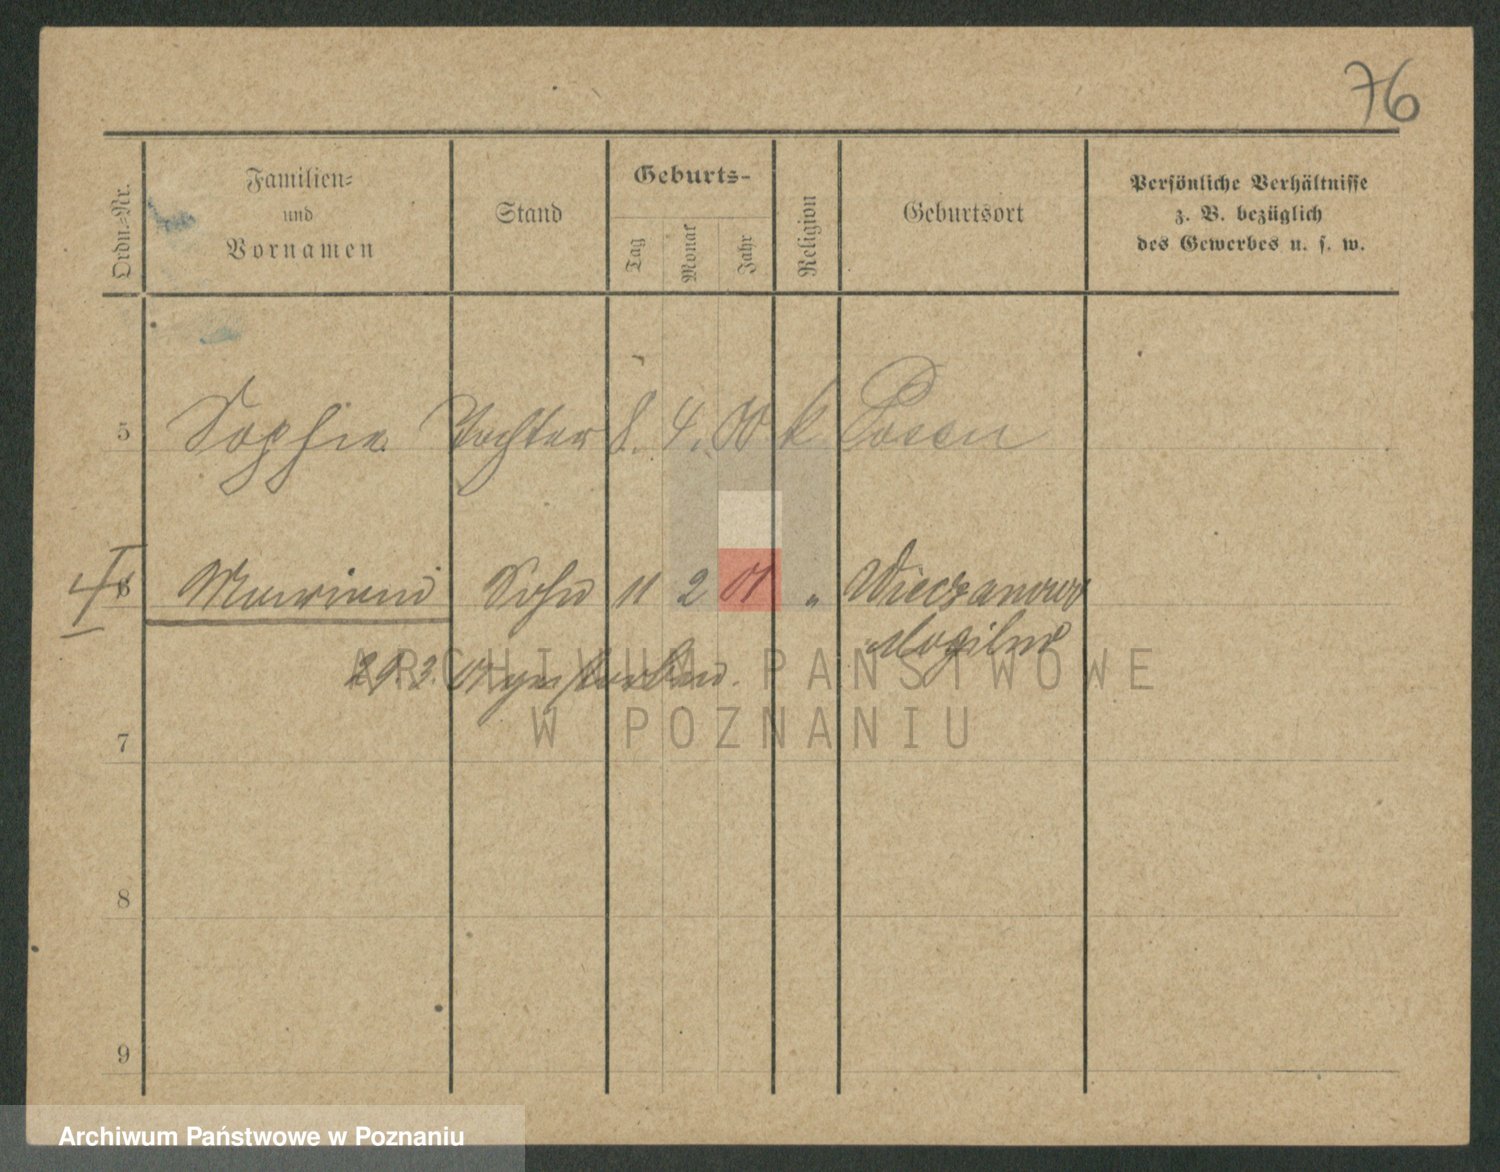 76
Ordn.-Nr.
Familien-
und
Vornamen
Stand
Geburts-
Tag
Monat
Jahr
Religion
Geburtsort
Persönliche Verhältnisse
z. B. bezüglich
des Gewerbes u. s. w.
5 Sophie Tochter 8. 4. 00 k Posen
6 Sohn 11 2 01 " Wieczanowo
Mogilno
29 3. 01 gestorben.
7
8
9
ARCHIWUM PAŃSTWOWE
W POZNANIU
Archiwum Państwowe w Poznaniu